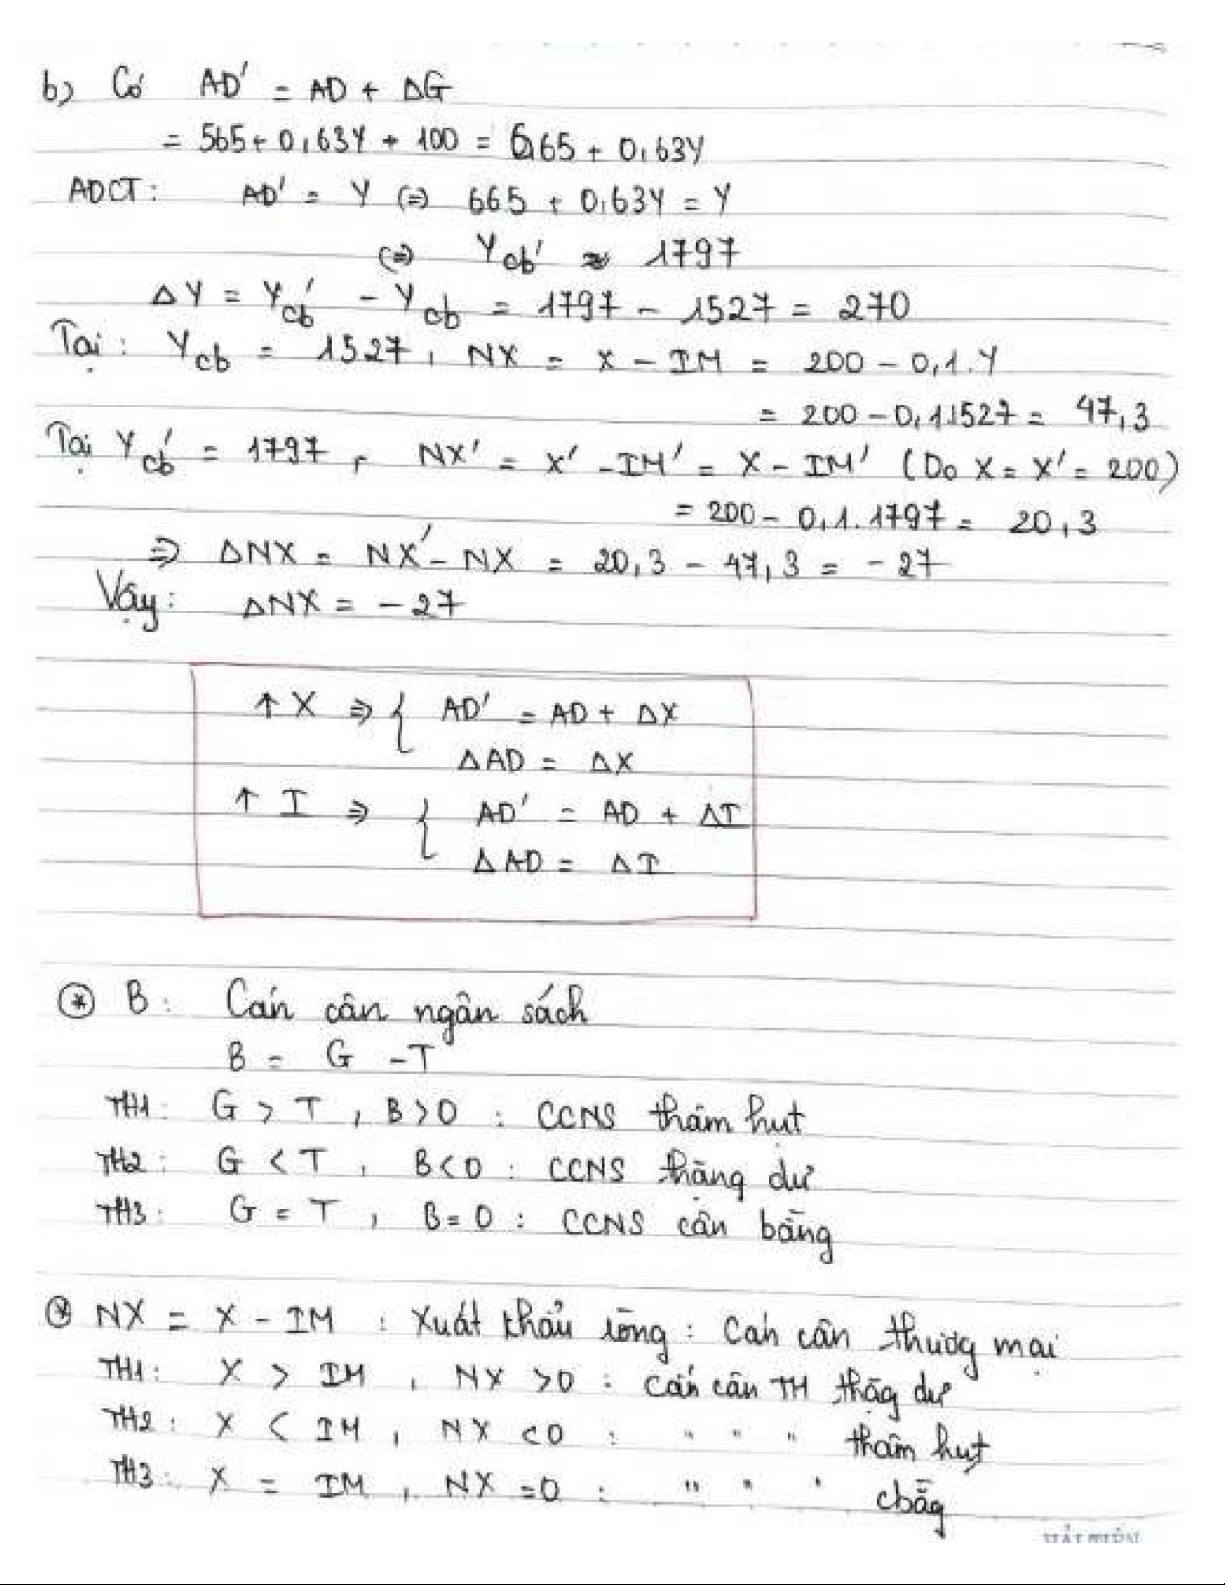 b) Có AD' = AD + ΔG
= 565 + 0,63Y + 100 = 665 + 0,63Y
ADCT: AD' = Y (=) 665 + 0,63Y = Y
(=) Ycb' ≈ 1797
ΔY = Ycb' - Ycb = 1797 - 1527 = 270
Tại: Ycb = 1527, NX = X - IM = 200 - 0,1.Y
= 200 - 0,1.1527 = 47,3
Tại Ycb' = 1797, NX' = X' - IM' = X - IM' (Do X = X' = 200)
= 200 - 0,1.1797 = 20,3
=> ΔNX = NX' - NX = 20,3 - 47,3 = -27
Vậy: ΔNX = -27
↑ X => { AD' = AD + ΔX
ΔAD = ΔX
↑ I => { AD' = AD + ΔI
ΔAD = ΔI
* B: Cán cân ngân sách
B = G - T
TH1: G > T, B > 0 : CCNS thâm hụt
TH2: G < T, B < 0 : CCNS thặng dư
TH3: G = T, B = 0 : CCNS cân bằng
* NX = X - IM : Xuất khẩu ròng : Cán cân thương mại
TH1: X > IM, NX > 0 : Cán cân TM thặg dư
TH2: X < IM, NX < 0 : " " " thâm hụt
TH3: X = IM, NX = 0 : " " " cbằg
HẢI TIẾN